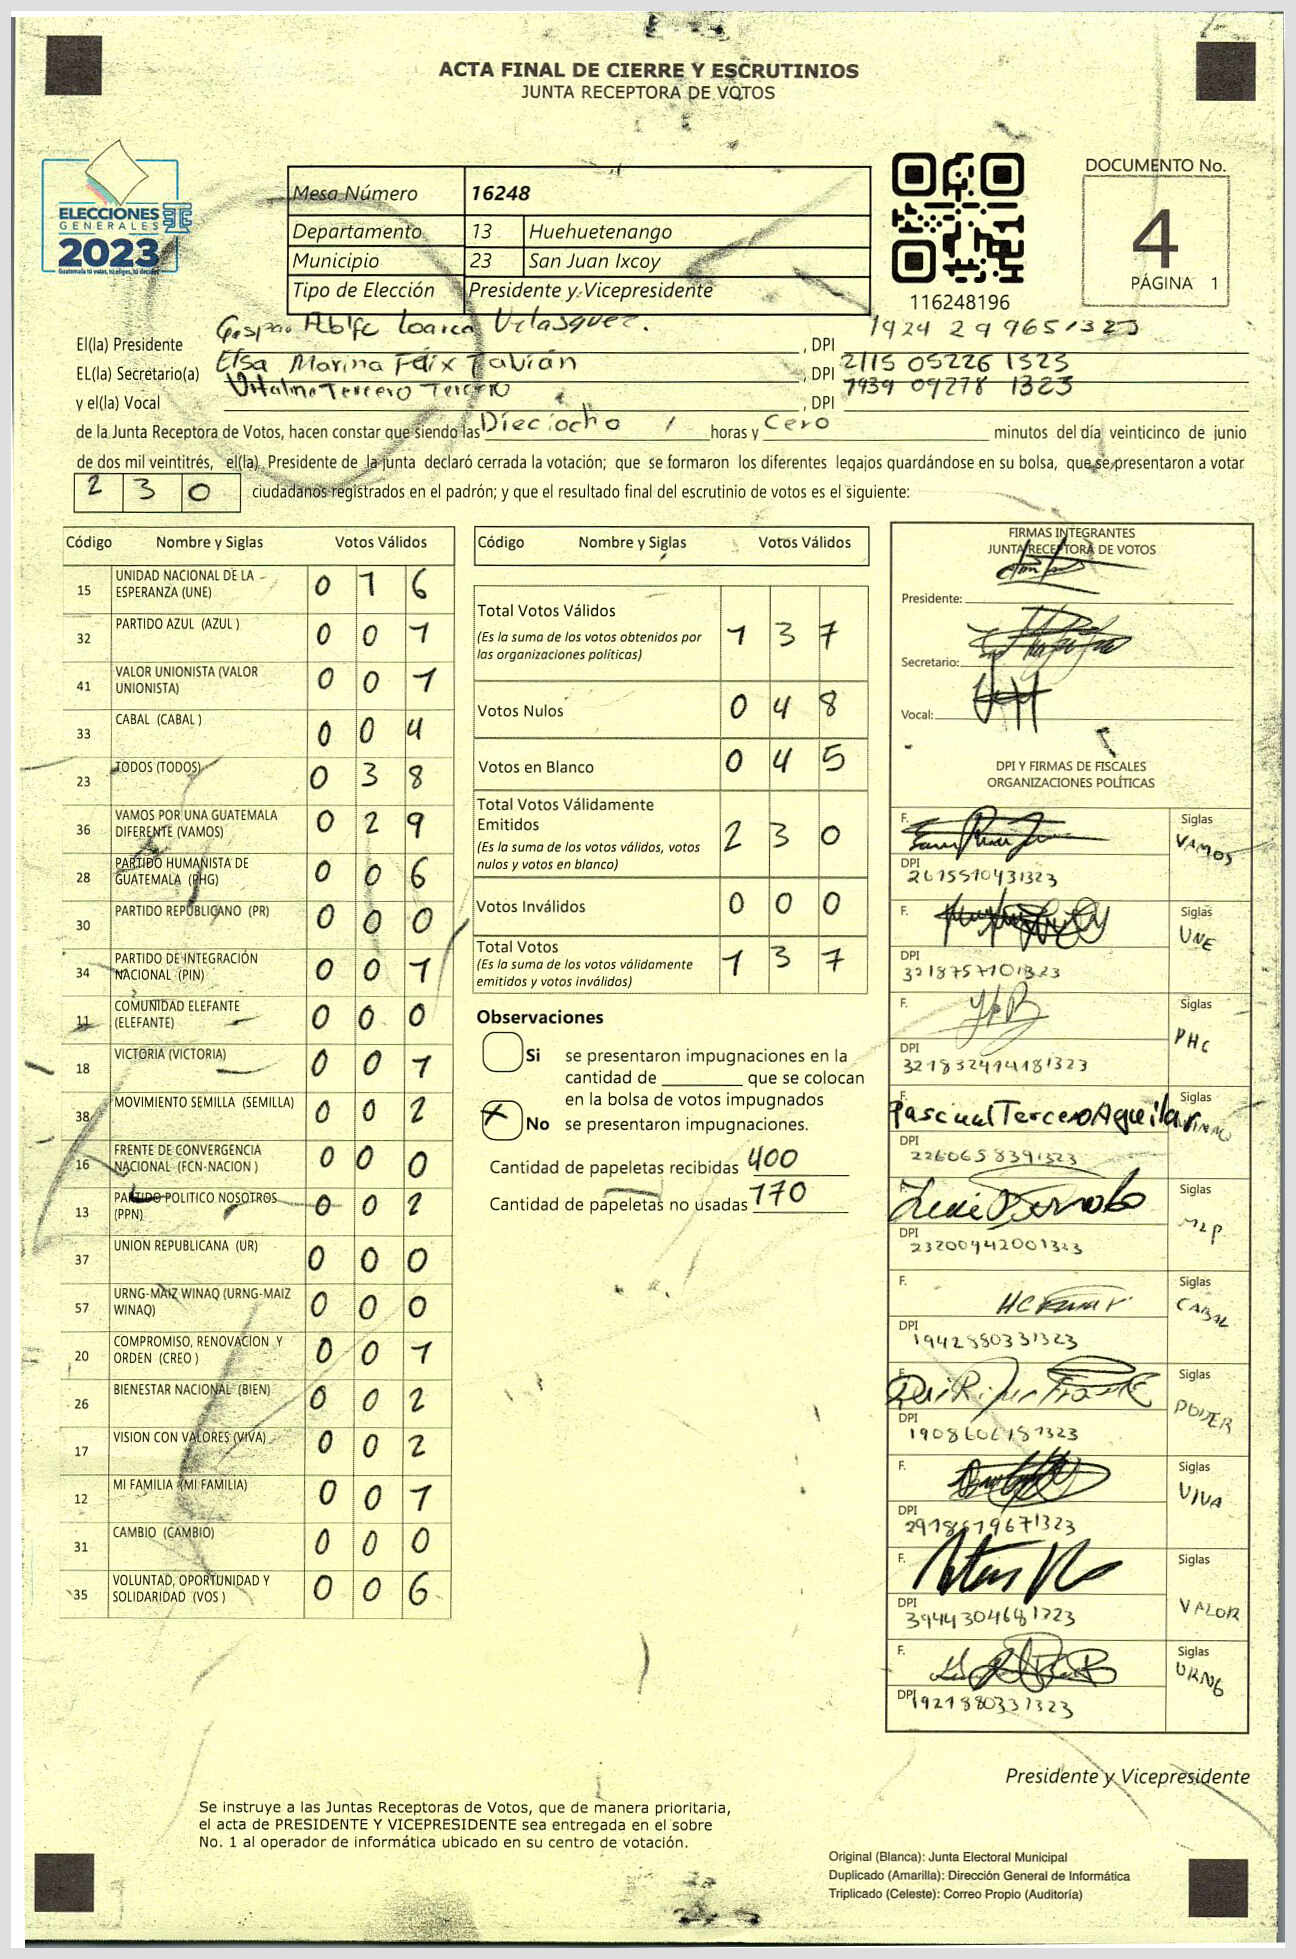 ACTA FINAL DE CIERRE Y ESCRUTINIOS
JUNTA RECEPTORA DE VOTOS
ELECCIONES
GENERALES
2023
Guatemala tú votas, tú eliges, tú decides
Mesa Número 16248
Departamento 13 Huehuetenango
Municipio 23 San Juan Ixcoy
Tipo de Elección Presidente y Vicepresidente
116248196
DOCUMENTO No.
4
PÁGINA 1
El(la) Presidente Velasquez. , DPI
EL(la) Secretario(a) Elsa Marina Felix Fabián , DPI 2115 05226 1323
y el(la) Vocal Vitalino Tercero Tercero , DPI 7939 09278 1323
de la Junta Receptora de Votos, hacen constar que siendo las Dieciocho horas y Cero minutos del día veinticinco de junio
de dos mil veintitrés, el(la) Presidente de la junta declaró cerrada la votación; que se formaron los diferentes legajos guardándose en su bolsa, que se presentaron a votar
2 3 0 ciudadanos registrados en el padrón; y que el resultado final del escrutinio de votos es el siguiente:
Código Nombre y Siglas Votos Válidos
15 UNIDAD NACIONAL DE LA ESPERANZA (UNE) 0 1 6
32 PARTIDO AZUL (AZUL ) 0 0 1
41 VALOR UNIONISTA (VALOR UNIONISTA) 0 0 1
33 CABAL (CABAL ) 0 0 4
23 TODOS (TODOS) 0 3 8
36 VAMOS POR UNA GUATEMALA DIFERENTE (VAMOS) 0 2 9
28 PARTIDO HUMANISTA DE GUATEMALA (PHG) 0 0 6
30 PARTIDO REPUBLICANO (PR) 0 0 0
34 PARTIDO DE INTEGRACIÓN NACIONAL (PIN) 0 0 1
11 COMUNIDAD ELEFANTE (ELEFANTE) 0 0 0
18 VICTORIA (VICTORIA) 0 0 1
38 MOVIMIENTO SEMILLA (SEMILLA) 0 0 2
16 FRENTE DE CONVERGENCIA NACIONAL (FCN-NACION ) 0 0 0
13 PARTIDO POLITICO NOSOTROS (PPN) 0 0 2
37 UNION REPUBLICANA (UR) 0 0 0
57 URNG-MAIZ WINAQ (URNG-MAIZ WINAQ) 0 0 0
20 COMPROMISO, RENOVACION Y ORDEN (CREO ) 0 0 1
26 BIENESTAR NACIONAL (BIEN) 0 0 2
17 VISION CON VALORES (VIVA) 0 0 2
12 MI FAMILIA (MI FAMILIA) 0 0 1
31 CAMBIO (CAMBIO) 0 0 0
35 VOLUNTAD, OPORTUNIDAD Y SOLIDARIDAD (VOS ) 0 0 6
Código Nombre y Siglas Votos Válidos
Total Votos Válidos 1 3 7
(Es la suma de los votos obtenidos por
las organizaciones políticas)
Votos Nulos 0 4 8
Votos en Blanco 0 4 5
Total Votos Válidamente
Emitidos 2 3 0
(Es la suma de los votos válidos, votos
nulos y votos en blanco)
Votos Inválidos 0 0 0
Total Votos 1 3 7
(Es la suma de los votos válidamente
emitidos y votos inválidos)
Observaciones
Si se presentaron impugnaciones en la
cantidad de ________ que se colocan
en la bolsa de votos impugnados
X No se presentaron impugnaciones.
Cantidad de papeletas recibidas 400
Cantidad de papeletas no usadas 170
FIRMAS INTEGRANTES
JUNTA RECEPTORA DE VOTOS
Presidente:
Secretario:
Vocal:
DPI Y FIRMAS DE FISCALES
ORGANIZACIONES POLÍTICAS
F. Siglas VAMOS
DPI 2615510431323
F. Siglas UNE
DPI
F. Siglas PHG
DPI
F. Pascual Tercero Aguilar Siglas
DPI 2260658391323
F. Siglas MLP
DPI 23200942001323
F. Siglas CABAL
DPI 1942880331323
F. Siglas PODER
DPI 1908606181323
F. Siglas VIVA
DPI 2918619671323
F. Siglas VALOR
DPI 3944304681323
F. Siglas URNG
DPI 1921880331323
Presidente y Vicepresidente
Se instruye a las Juntas Receptoras de Votos, que de manera prioritaria,
el acta de PRESIDENTE Y VICEPRESIDENTE sea entregada en el sobre
No. 1 al operador de informática ubicado en su centro de votación.
Original (Blanca): Junta Electoral Municipal
Duplicado (Amarilla): Dirección General de Informática
Triplicado (Celeste): Correo Propio (Auditoría)